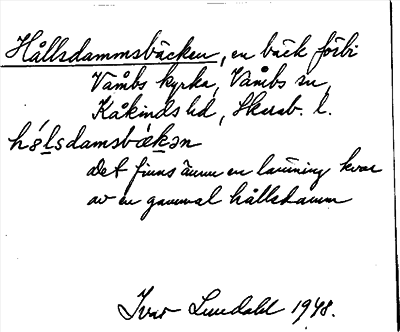 Hållsdammsbäcken, en bäck förbi
Våmbs kyrka, Våmbs sn,
Kåkinds hd, Skarab. l.
hɵ́lsdamsbæ̀kən
det finns ännu en lämning kvar
av en gammal hållsdamm
Ivar Lundahl 1948.